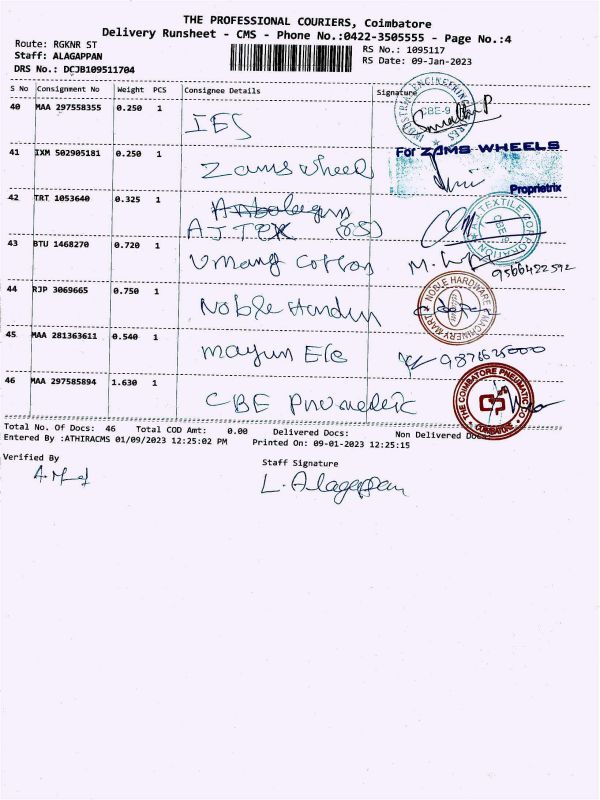 THE PROFESSIONAL COURIERS, Coimbatore
Delivery Runsheet - CMS - Phone No.:0422-3505555 - Page No.:4
Route: RGKNR ST
RS No.: 1095117
Staff: ALAGAPPAN
RS Date: 09-Jan-2023
DRS No.: DCJB109511704
S No Consignment No Weight PCS Consignee Details Signature
40 MAA 297558355 0.250 1 IES
INDUSTRIAL ENGINEERING CBE-9
41 IXM 502905181 0.250 1 Zams wheel
For ZAMS WHEELS
Proprietrix
42 TRT 1053640 0.325 1
AJ TEX
A.J TEXTILE CORPORATION
43 BTU 1468270 0.720 1 Umang Cotton
9566422592
44 RJP 3069665 0.750 1 Noble
NOBLE HARDWARE MACHINERY MART
45 MAA 281363611 0.540 1 mayun Ele 9876625000
46 MAA 297585894 1.630 1 CBE pnumedic
THE COIMBATORE PNEUMATIC CO. COIMBATORE
Total No. Of Docs: 46 Total COD Amt: 0.00 Delivered Docs: Non Delivered Docs:
Entered By :ATHIRACMS 01/09/2023 12:25:02 PM Printed On: 09-01-2023 12:25:15
Verified By
Staff Signature
L. Alagappan